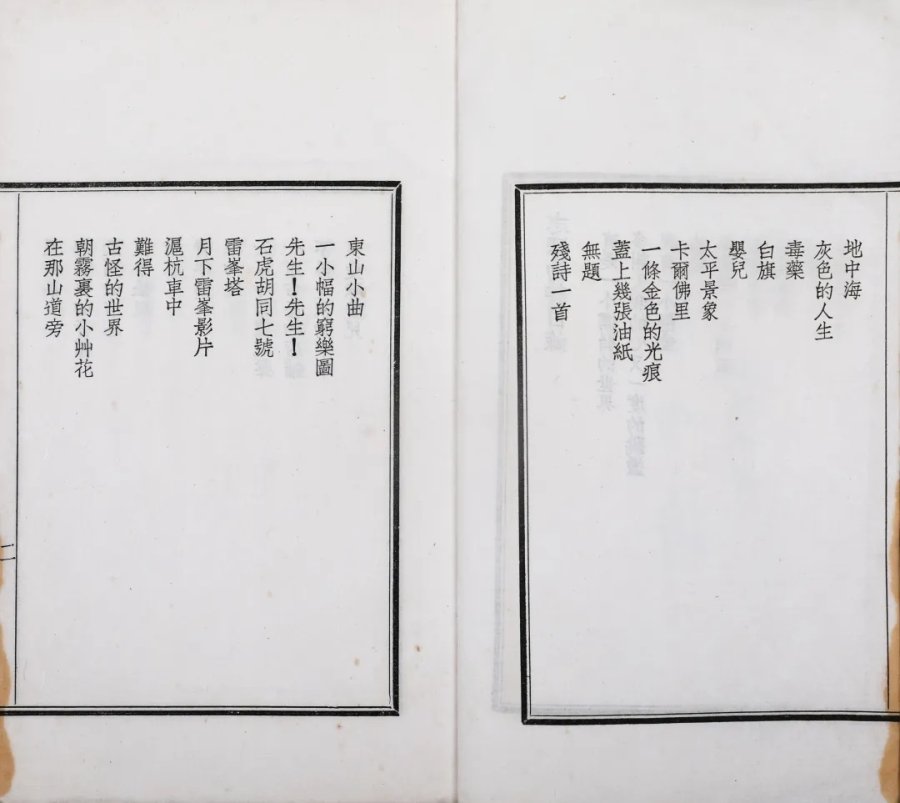 地中海
灰色的人生
毒藥
白旗
嬰兒
太平景象
卡爾佛里
一條金色的光痕
蓋上幾張油紙
無題
殘詩一首
東山小曲
一小幅的窮樂圖
先生！先生！
石虎胡同七號
雷峯塔
月下雷峯影片
滬杭車中
難得
古怪的世界
朝霧裏的小艸花
在那山道旁
二